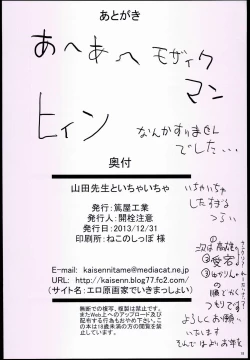 あとがき
あへあへ モザイク
マン
ヒィン
なんかすりません
でした…
奥付
山田先生といちゃいちゃ
発行:篤屋工業
発行人:開栓注意
発行日:2013/12/31
印刷所:ねこのしっぽ 様
E-mail: kaisennitame@mediacat.ne.jp
URL: http://kaisenn.blog77.fc2.com/
(サイト名:エロ原画家でいきまっしょい)
無断での複写、複製は禁止です。
またWeb上へのアップロード及び
配布する行為もおやめ下さい。
この本は18歳未満の方の閲覧を禁
止しています。
いちゃいちゃ
つらい
次は
よろしくお願い
いたします